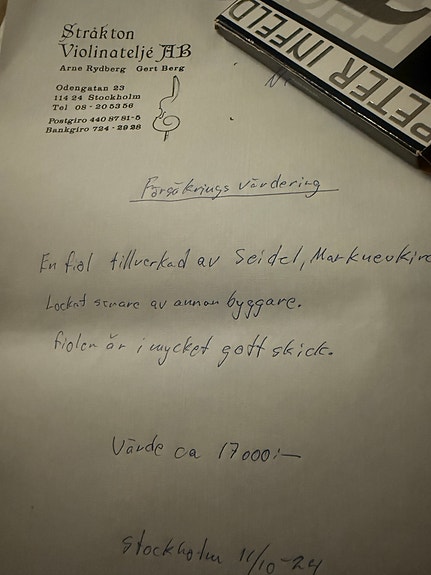 Stråkton
Violinateljé AB
Arne Rydberg Gert Berg
Odengatan 23
114 24 Stockholm
Tel 08 - 20 53 56
Postgiro 440 87 81-5
Bankgiro 724 - 29 28
PETER INFELD
Försäkrings värdering
En fiol tillverkad av Seidel, Markneukirc
Lockat senare av annan byggare.
fiolen är i mycket gott skick.
Värde ca 17000:-
Stockholm 11/10-24